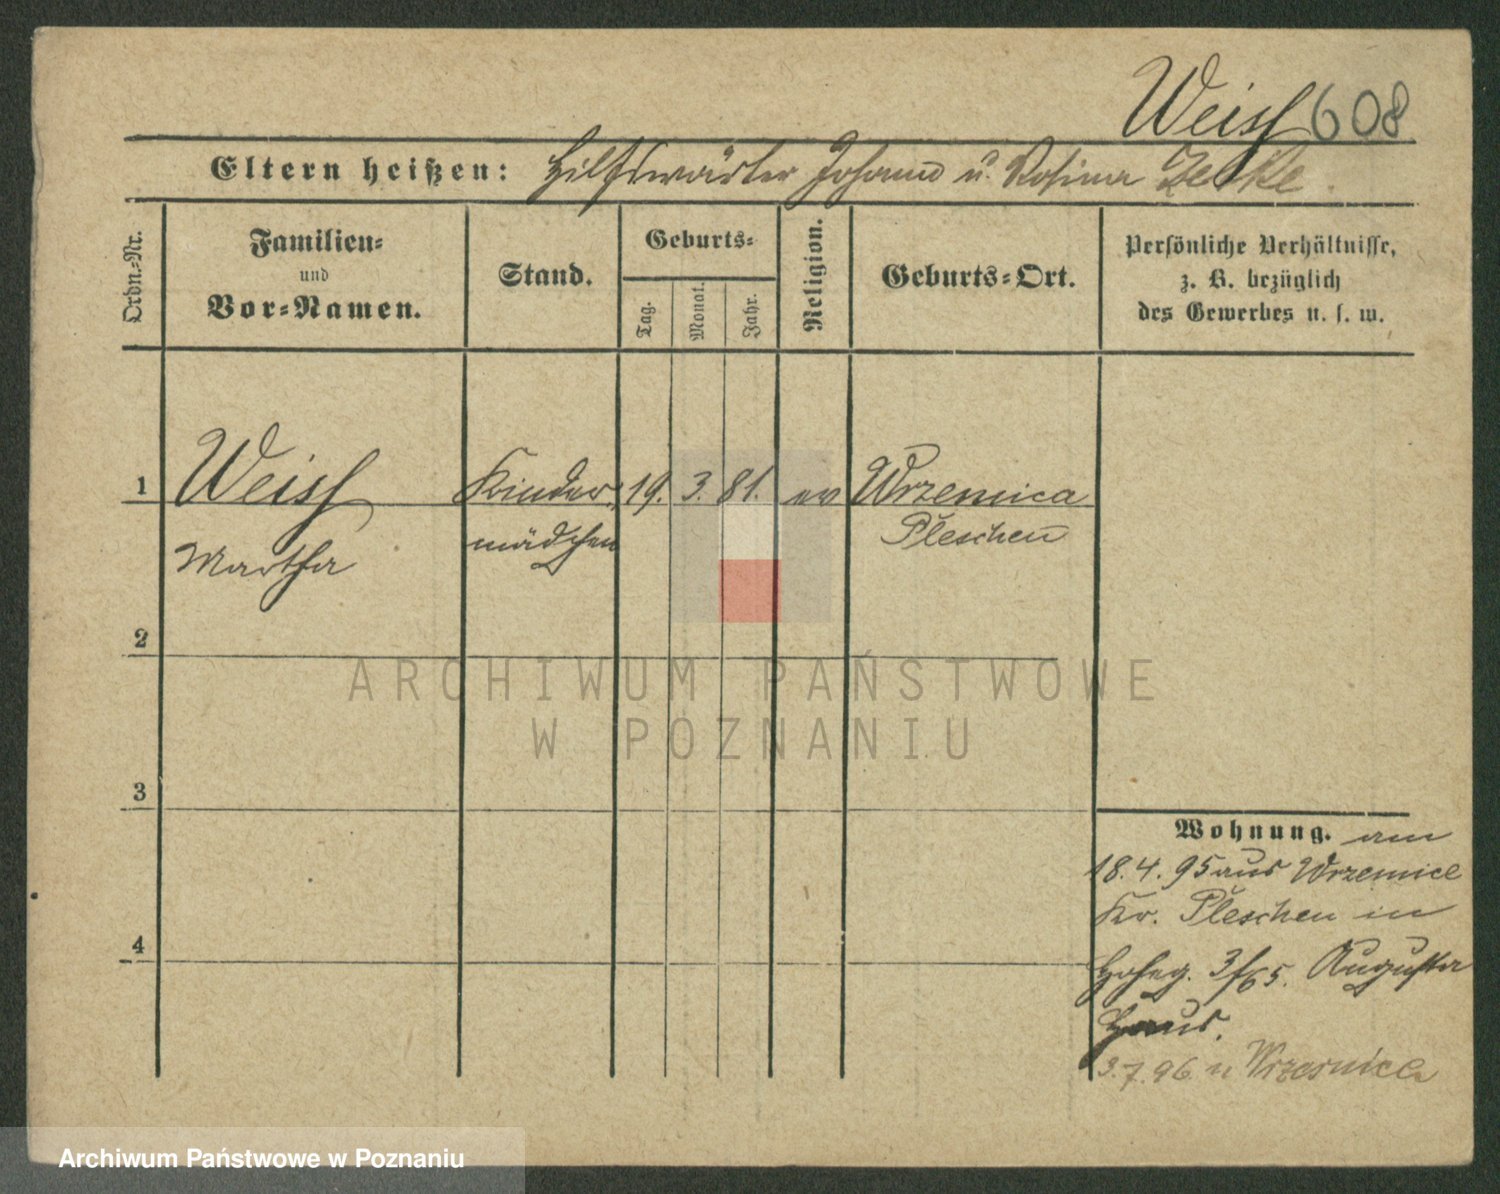 Weiß 608
Eltern heißen: Hilfswärter Johann u. Rosina
Ordn.-Nr.
Familien-
und
Vor-Namen.
Stand.
Geburts-
Tag.
Monat.
Jahr.
Religion.
Geburts-Ort.
Persönliche Verhältnisse,
z. B. bezüglich
des Gewerbes u. s. w.
1 Weiß Kinder- 19. 3. 81. ev Wrzemica
Martha mädchen Pleschen
2
3
4
Wohnung. am
18. 4. 95 aus Wrzemice
Kr. Pleschen in
Augusta
Haus.
3. 7. 96 n
ARCHIWUM PAŃSTWOWE
W POZNANIU
Archiwum Państwowe w Poznaniu